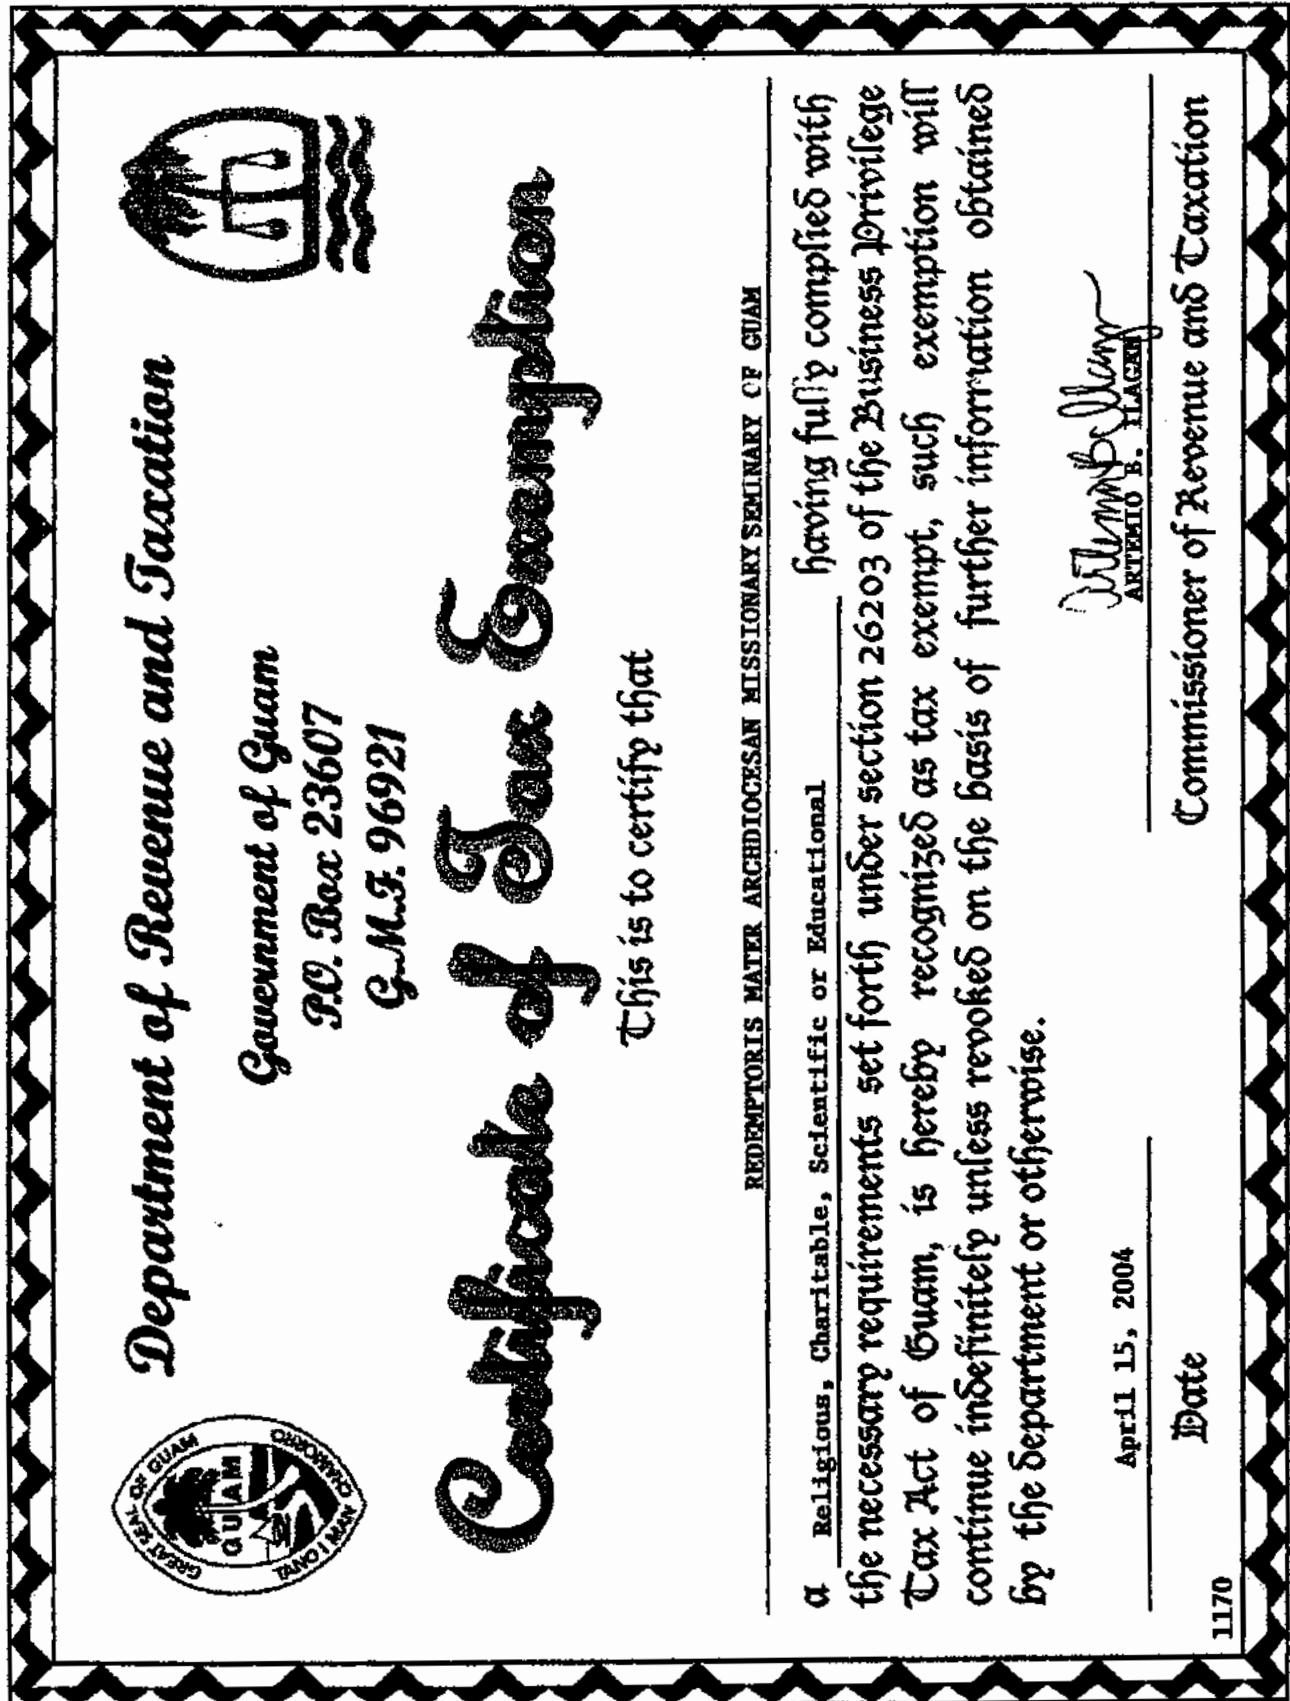 Department of Revenue and Taxation
Government of Guam
P.O. Box 23607
G.M.F. 96921
GREAT SEAL OF GUAM
GUAM
TANO I MAN CHAMORRO
Certificate of Tax Exemption
This is to certify that
REDEMPTORIS MATER ARCHDIOCESAN MISSIONARY SEMINARY OF GUAM
a Religious, Charitable, Scientific or Educational having fully complied with
the necessary requirements set forth under section 26203 of the Business Privilege
Tax Act of Guam, is hereby recognized as tax exempt, such exemption will
continue indefinitely unless revoked on the basis of further information obtained
by the department or otherwise.
April 15, 2004
ARTEMIO B. ILAGAN
Date
Commissioner of Revenue and Taxation
1170